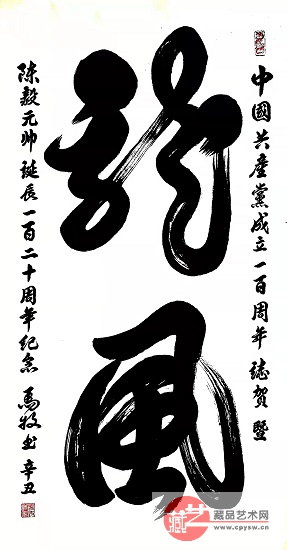 中國共產黨成立一百周年誌賀暨
龍風
陳毅元帥誕辰一百二十周年紀念 馬牧书 辛丑
藏艺
藏品艺术网
www.cpysw.cn